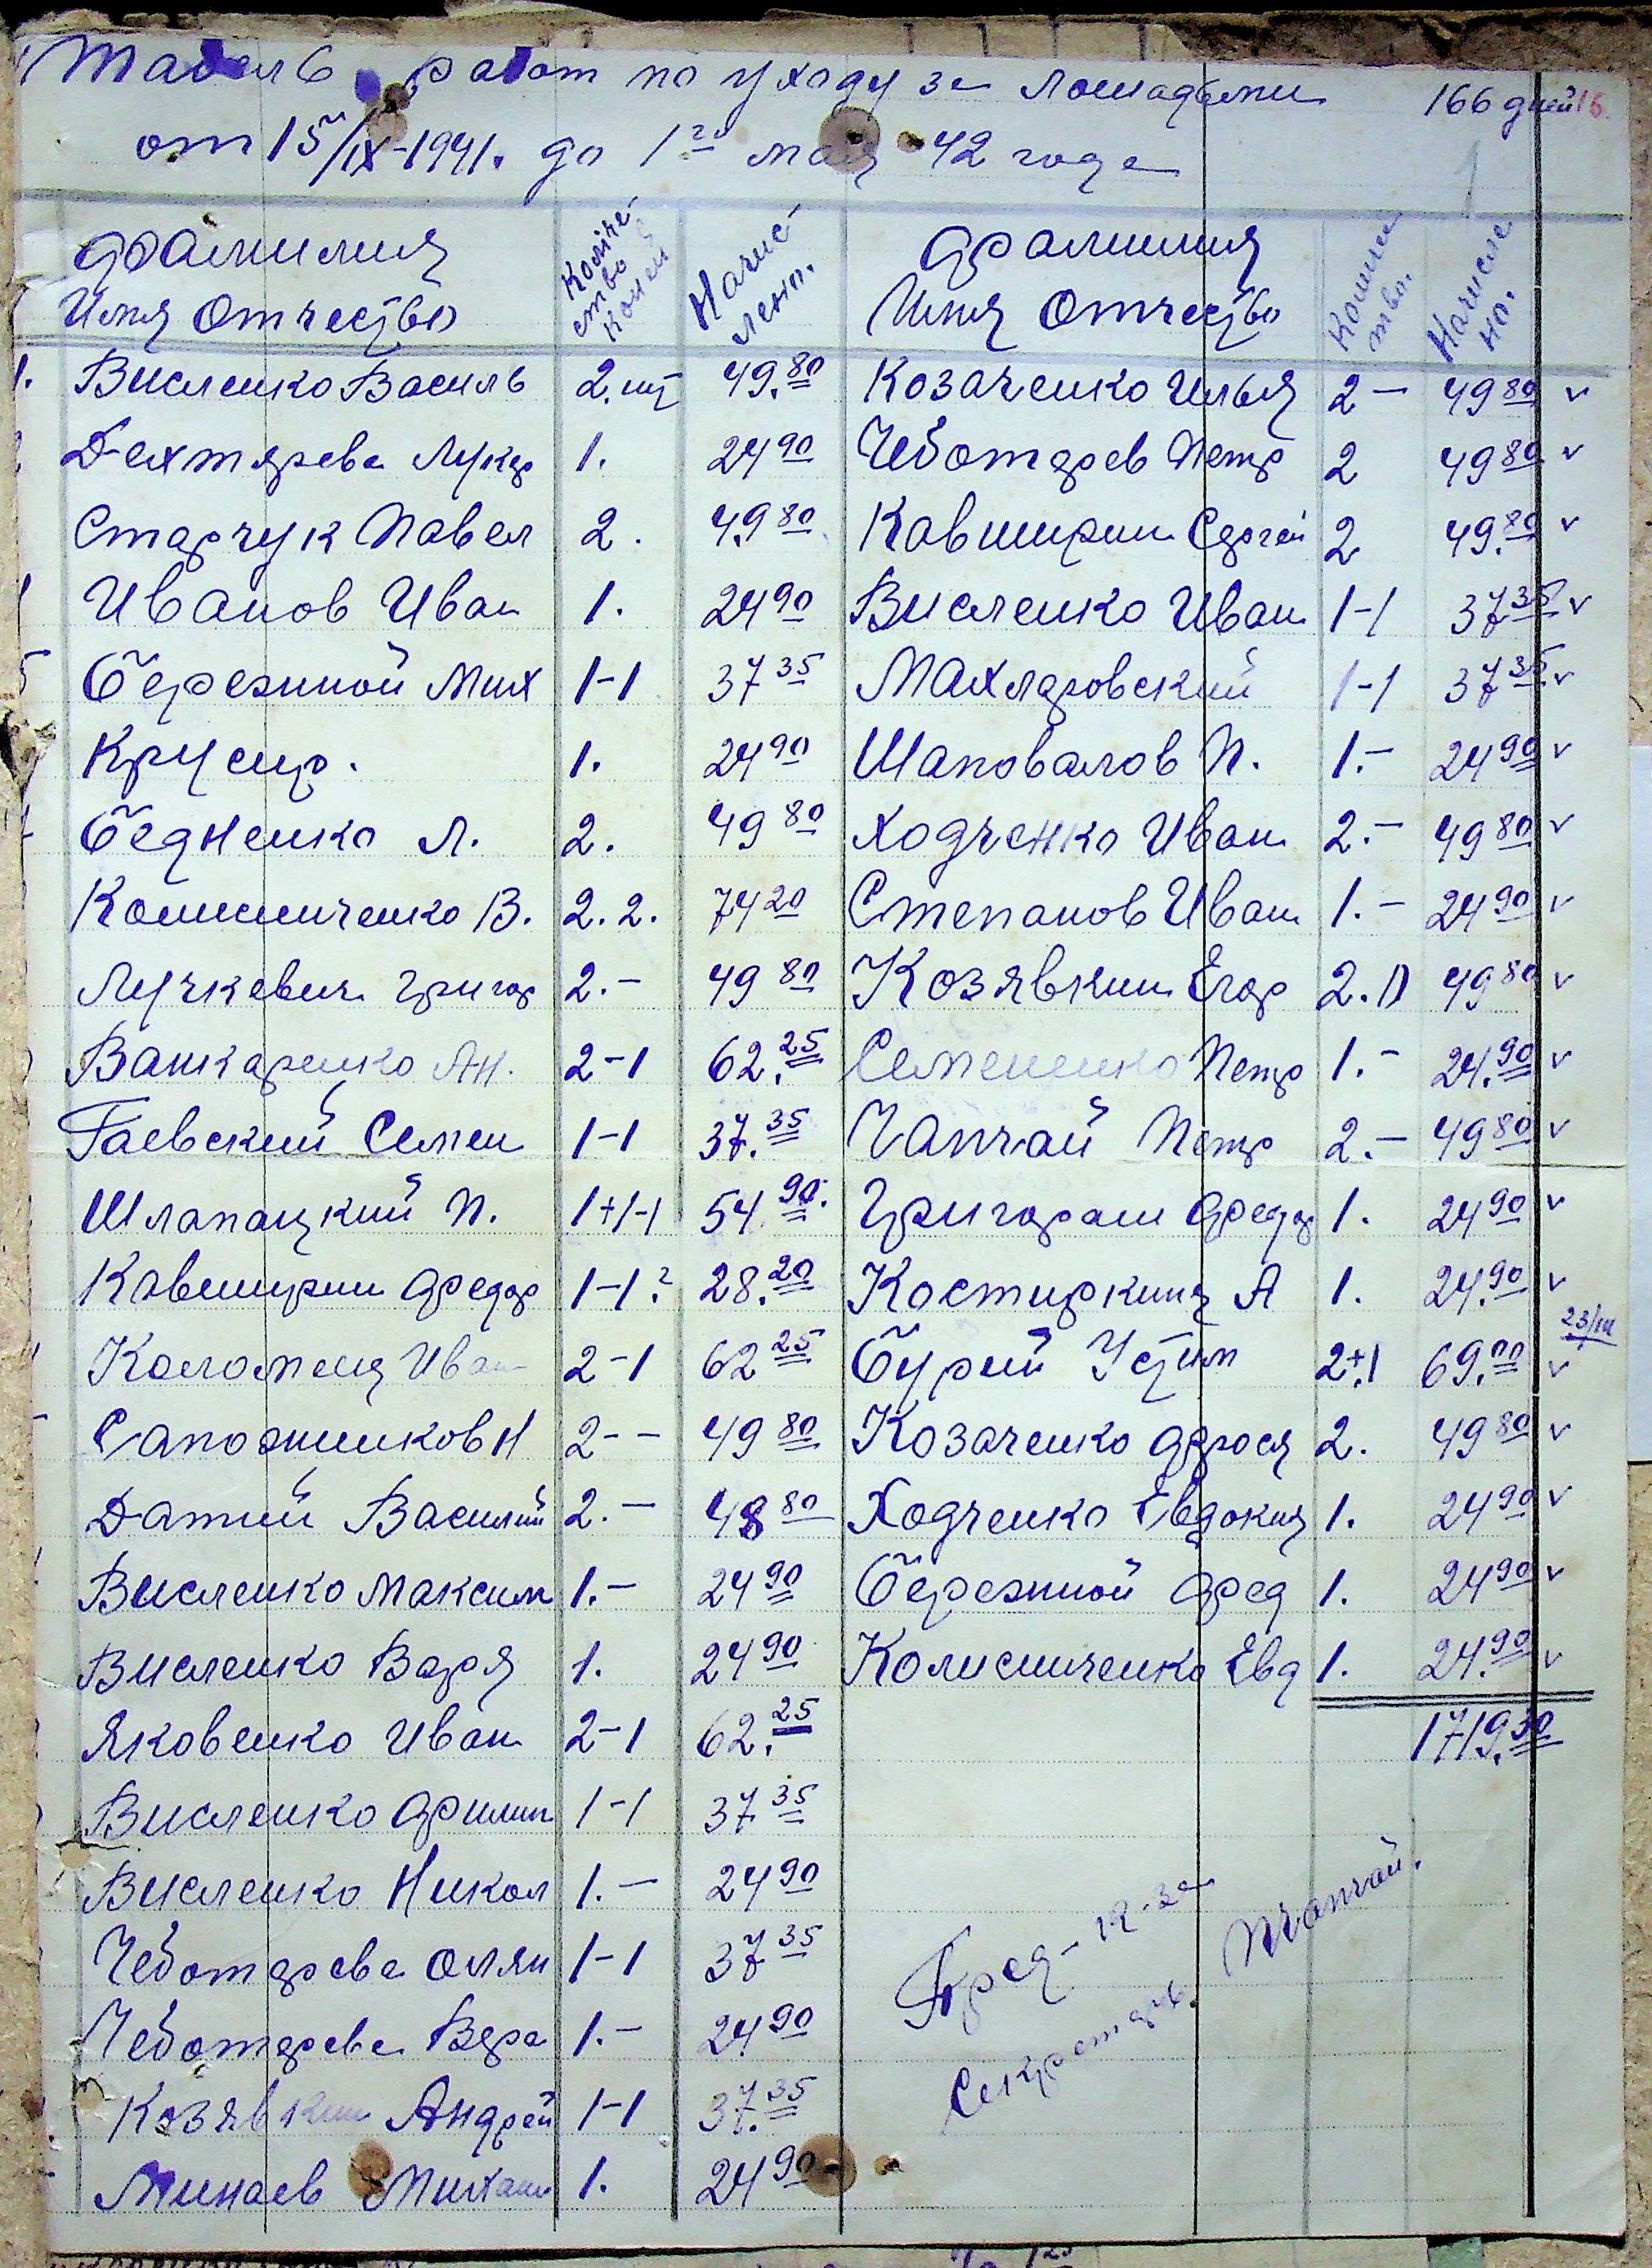 Табель работ по уходу за лошадьми 166 дней 16
от 15/IX-1941. до 1го мая 42 года
Фамилия Имя Отчество Количество коней Начислено. Фамилия Имя Отчество Количество. Начислено.
1. Висленко Василь 2.шт 49.80 Козаченко Илья 2 - 49 80 v
Дехтярева Лукер 1. 24 90 Чеботарев Петр 2 49 80 v
Старчук Павел 2. 49 80 Кавширин Сергей 2 49.80 v
Иванов Иван 1. 24 90 Висленко Иван 1-1 37 35 v
5 Бережной Мих 1-1 37 35 Махляровский 1-1 37 35 v
1. 24 90 Шаповалов П. 1.- 24 90 v
Бедненко Л. 2. 49 80 Ходченко Иван 2.- 49 80 v
Колисниченко В. 2. 2. 74 20 Степанов Иван 1.- 24 90 v
Лучкевич Григор 2.- 49 80 Козявкин Егор 2. 49 80 v
Вашкаренко Ан. 2-1 62.25 Семененко Петр 1.- 24.90 v
Гаевский Семен 1-1 37.35 Чапчай Петр 2.- 49 80 v
Шлапацкий П. 1+1-1 54.90. Григораш Федор 1. 24 90 v
Кавширин Федор 1-1? 28.20 Костиркина А 1. 24.90 v
23/III
Коломеец Иван 2-1 62 25 Бурий Устим 2+1 69.00 v
Сапожников Н 2-- 49 80 Козаченко Фрося 2. 49 80 v
Датий Василий 2.- 49 80 Ходченко Евдокия 1. 24 90 v
Висленко Максим 1.- 24 90 Бережной Фед 1. 24 90 v
Висленко Варя 1. 24 90 Колисниченко Евд 1. 24.90 v
Яковенко Иван 2-1 62.25 1719.30
Висленко Филип 1-1 37 35
Висленко Никол 1.- 24 90
Чеботарева Олян 1-1 37 35
Чеботарева Вера 1.- 24 90
Козявкин Андрей 1-1 37.35
Минаев Михаил 1. 24 90
Пред- к-за
Секретарь. Чапчай.